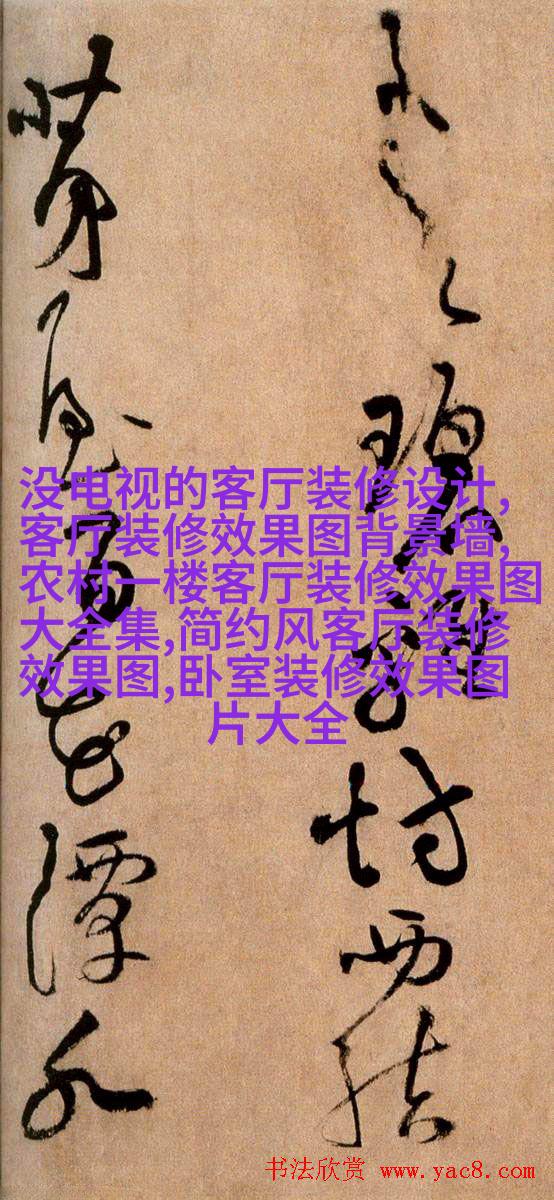 碧鷄坊西結
茅屋百花潭水
没电视的客厅装修设计,
客厅装修效果图背景墙,
农村一楼客厅装修效果图
大全集,简约风客厅装修
效果图,卧室装修效果图
片大全
书法欣赏 www.yac8.com